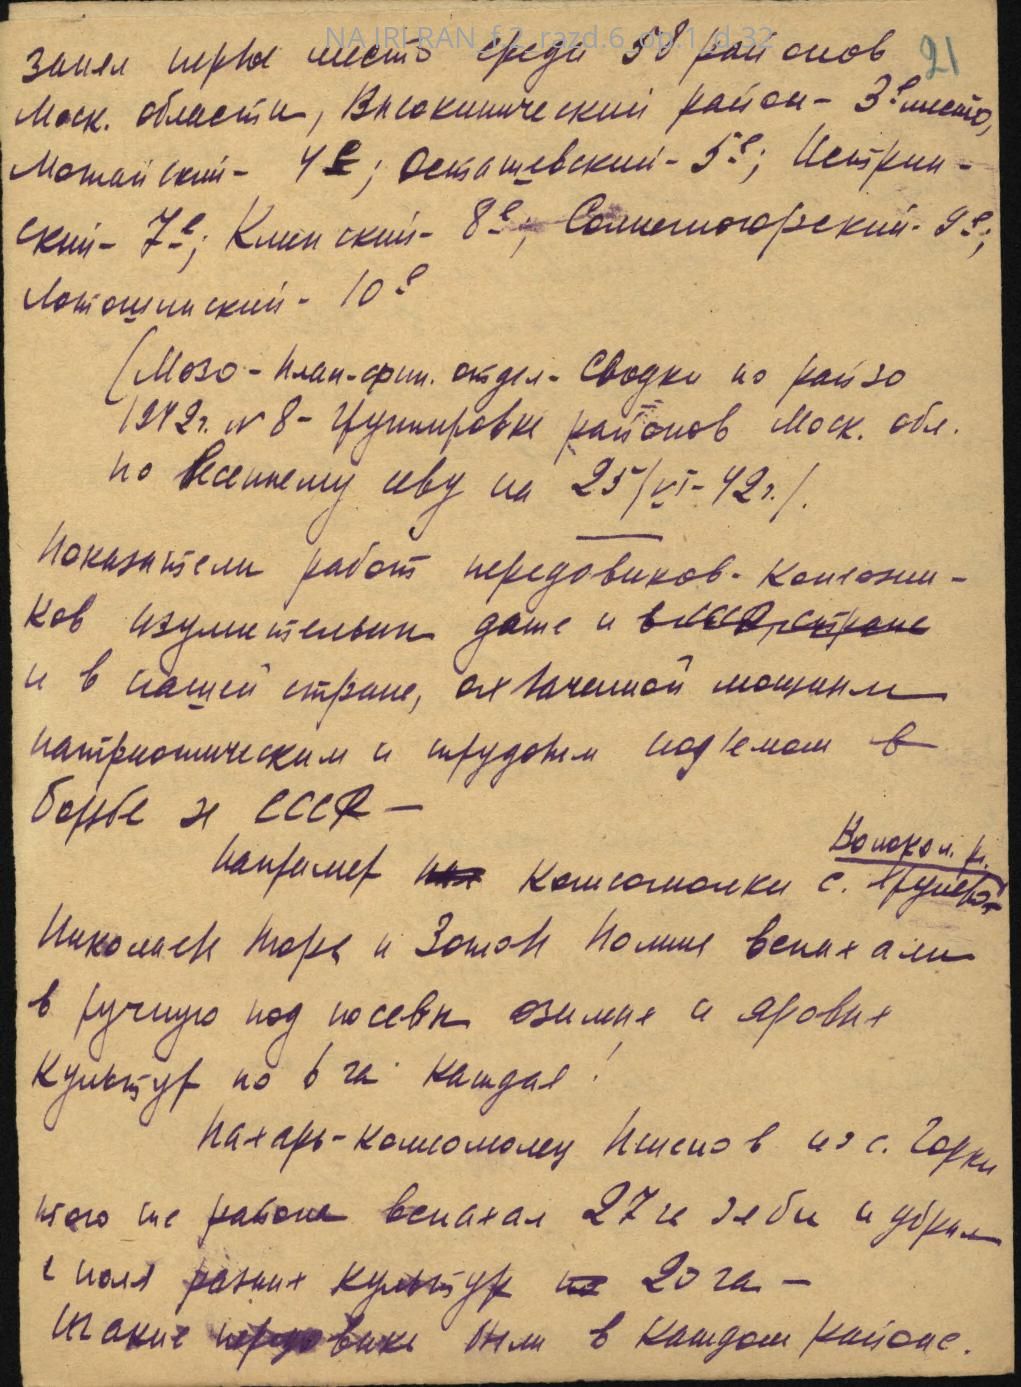 NA IRI RAN_f.2_razd.6_op.1_d.32
21
занял первое место среди 58 районов
Моск. области, Высокинический район - 3е место,
Можайский - 4е; Осташевский - 5е; Истрин-
ский - 7е; Клинский - 8е; Солнечногорский - 9е;
Лотошинский - 10е
(Мозо - План-фин. отдел - Сводки по райзо
1942г. № 8 - Группировке районов Моск. обл.
по весеннему севу на 25/VI-42г./.
Показатели работ передовиков-колхозни-
ков изумительны даже и в СССР, стране
и в нашей стране, охваченной мощным
патриотическим и трудовым под'емом в
борьбе за СССР -
Волокол. р.
Например комсомолки с.
Николаева и Зотова Полина вспахали
в ручную под посевы озимых и яровых
культур по 6 га каждая!
Пахарь-комсомолец из с. Горки
того же района вспахал 27 га зяби и убрал
с поля разных культур 20 га -
Такие передовики были в каждом районе.